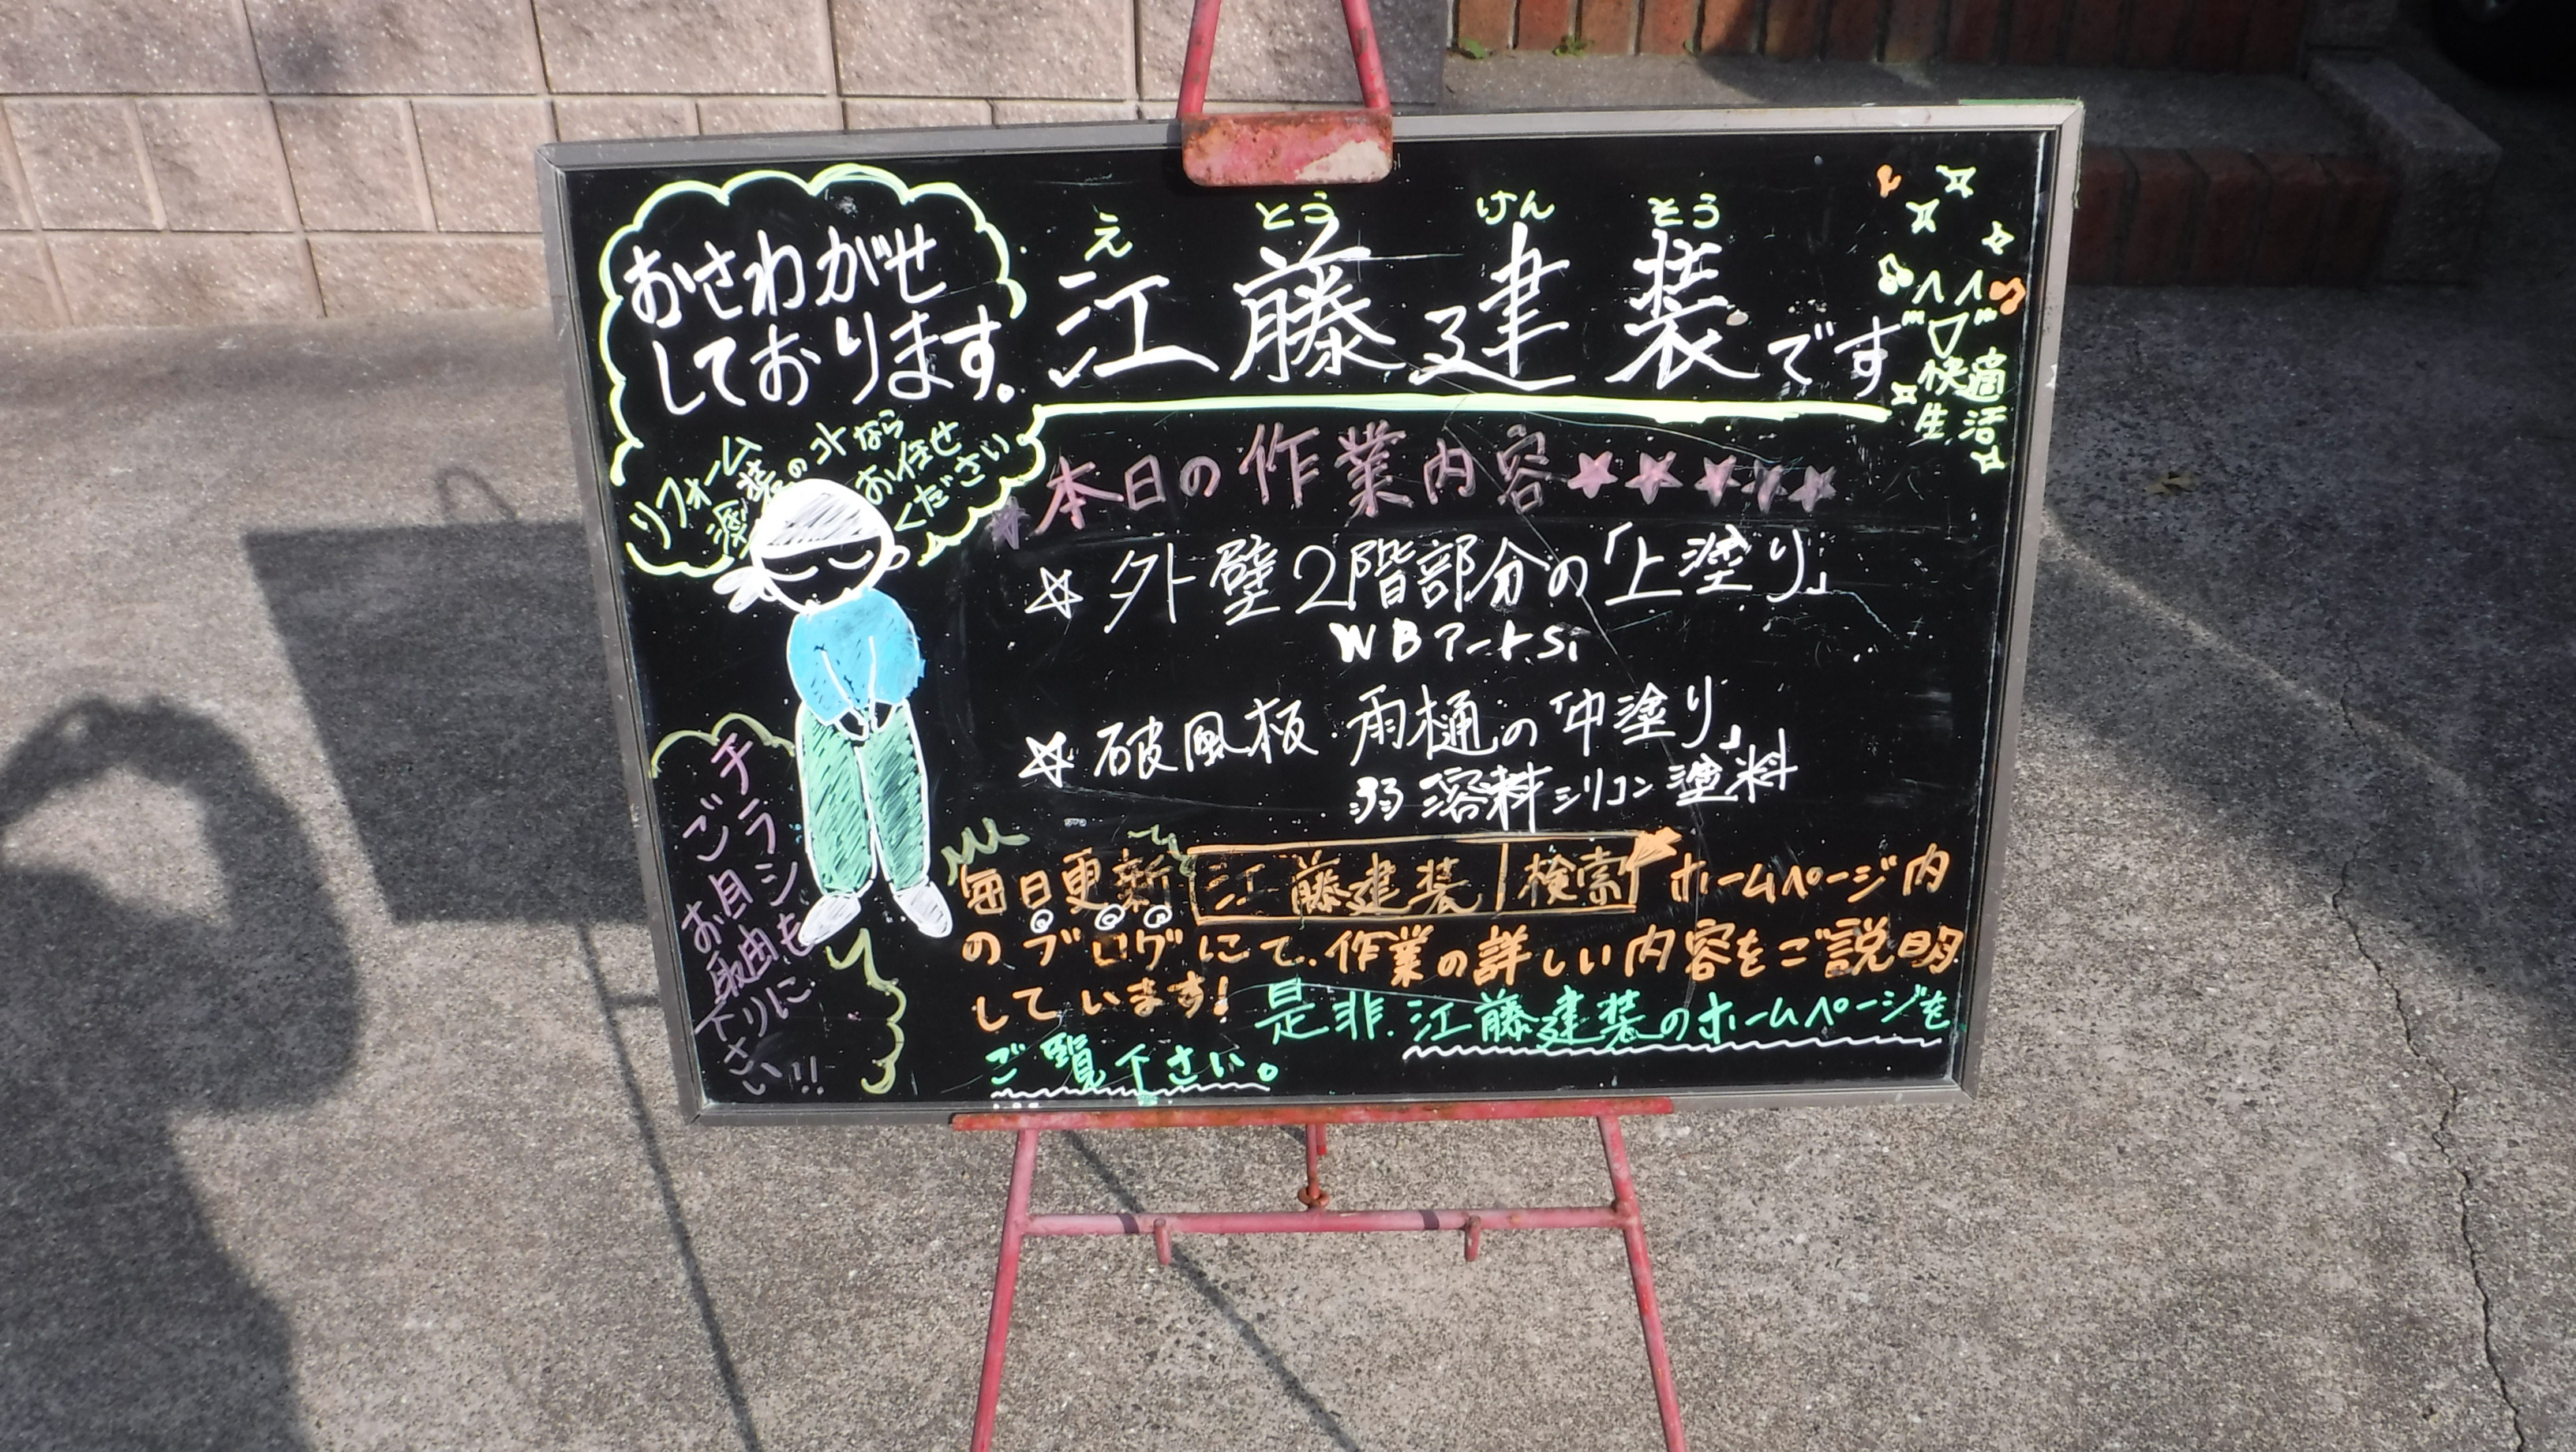 おさわがせ
しております。
リフォーム
塗装のコトなら
お任せ
ください
え とう けん そう
江藤建装です
快適
生活
本日の作業内容★★★★★
☆外壁2階部分の「上塗り」
WBアートSi
☆破風板・雨樋の「中塗り」
弱溶剤シリコン塗料
チラシも
ご自由に
お取り
下さい!!
毎日更新 江藤建装 検索 ホームページ内
のブログにて、作業の詳しい内容をご説明
しています! 是非、江藤建装のホームページを
ご覧下さい。